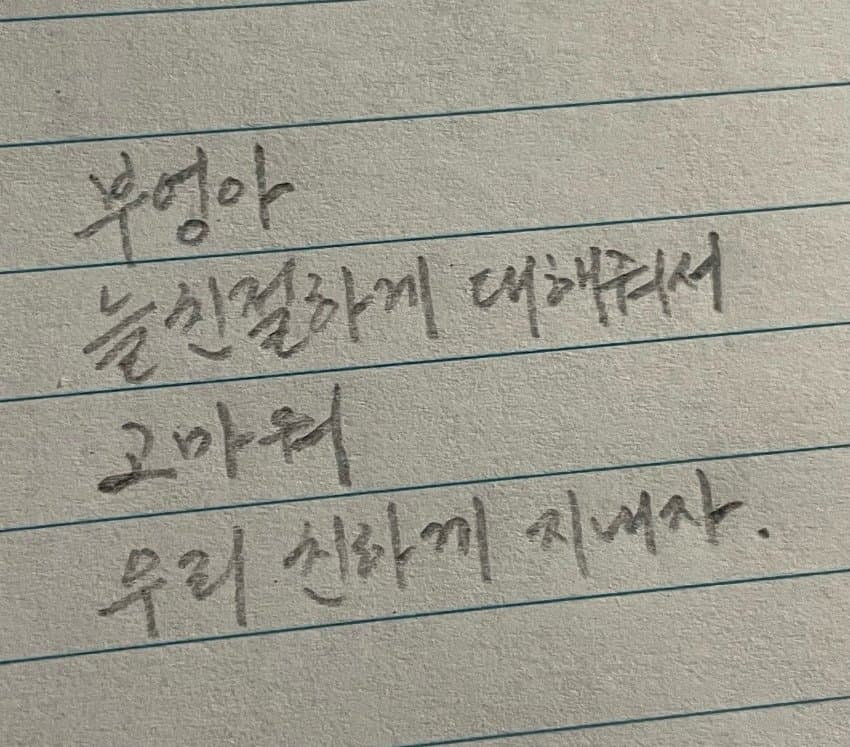 부엉아
늘 친절하게 대해줘서
고마워
우리 친하게 지내자.